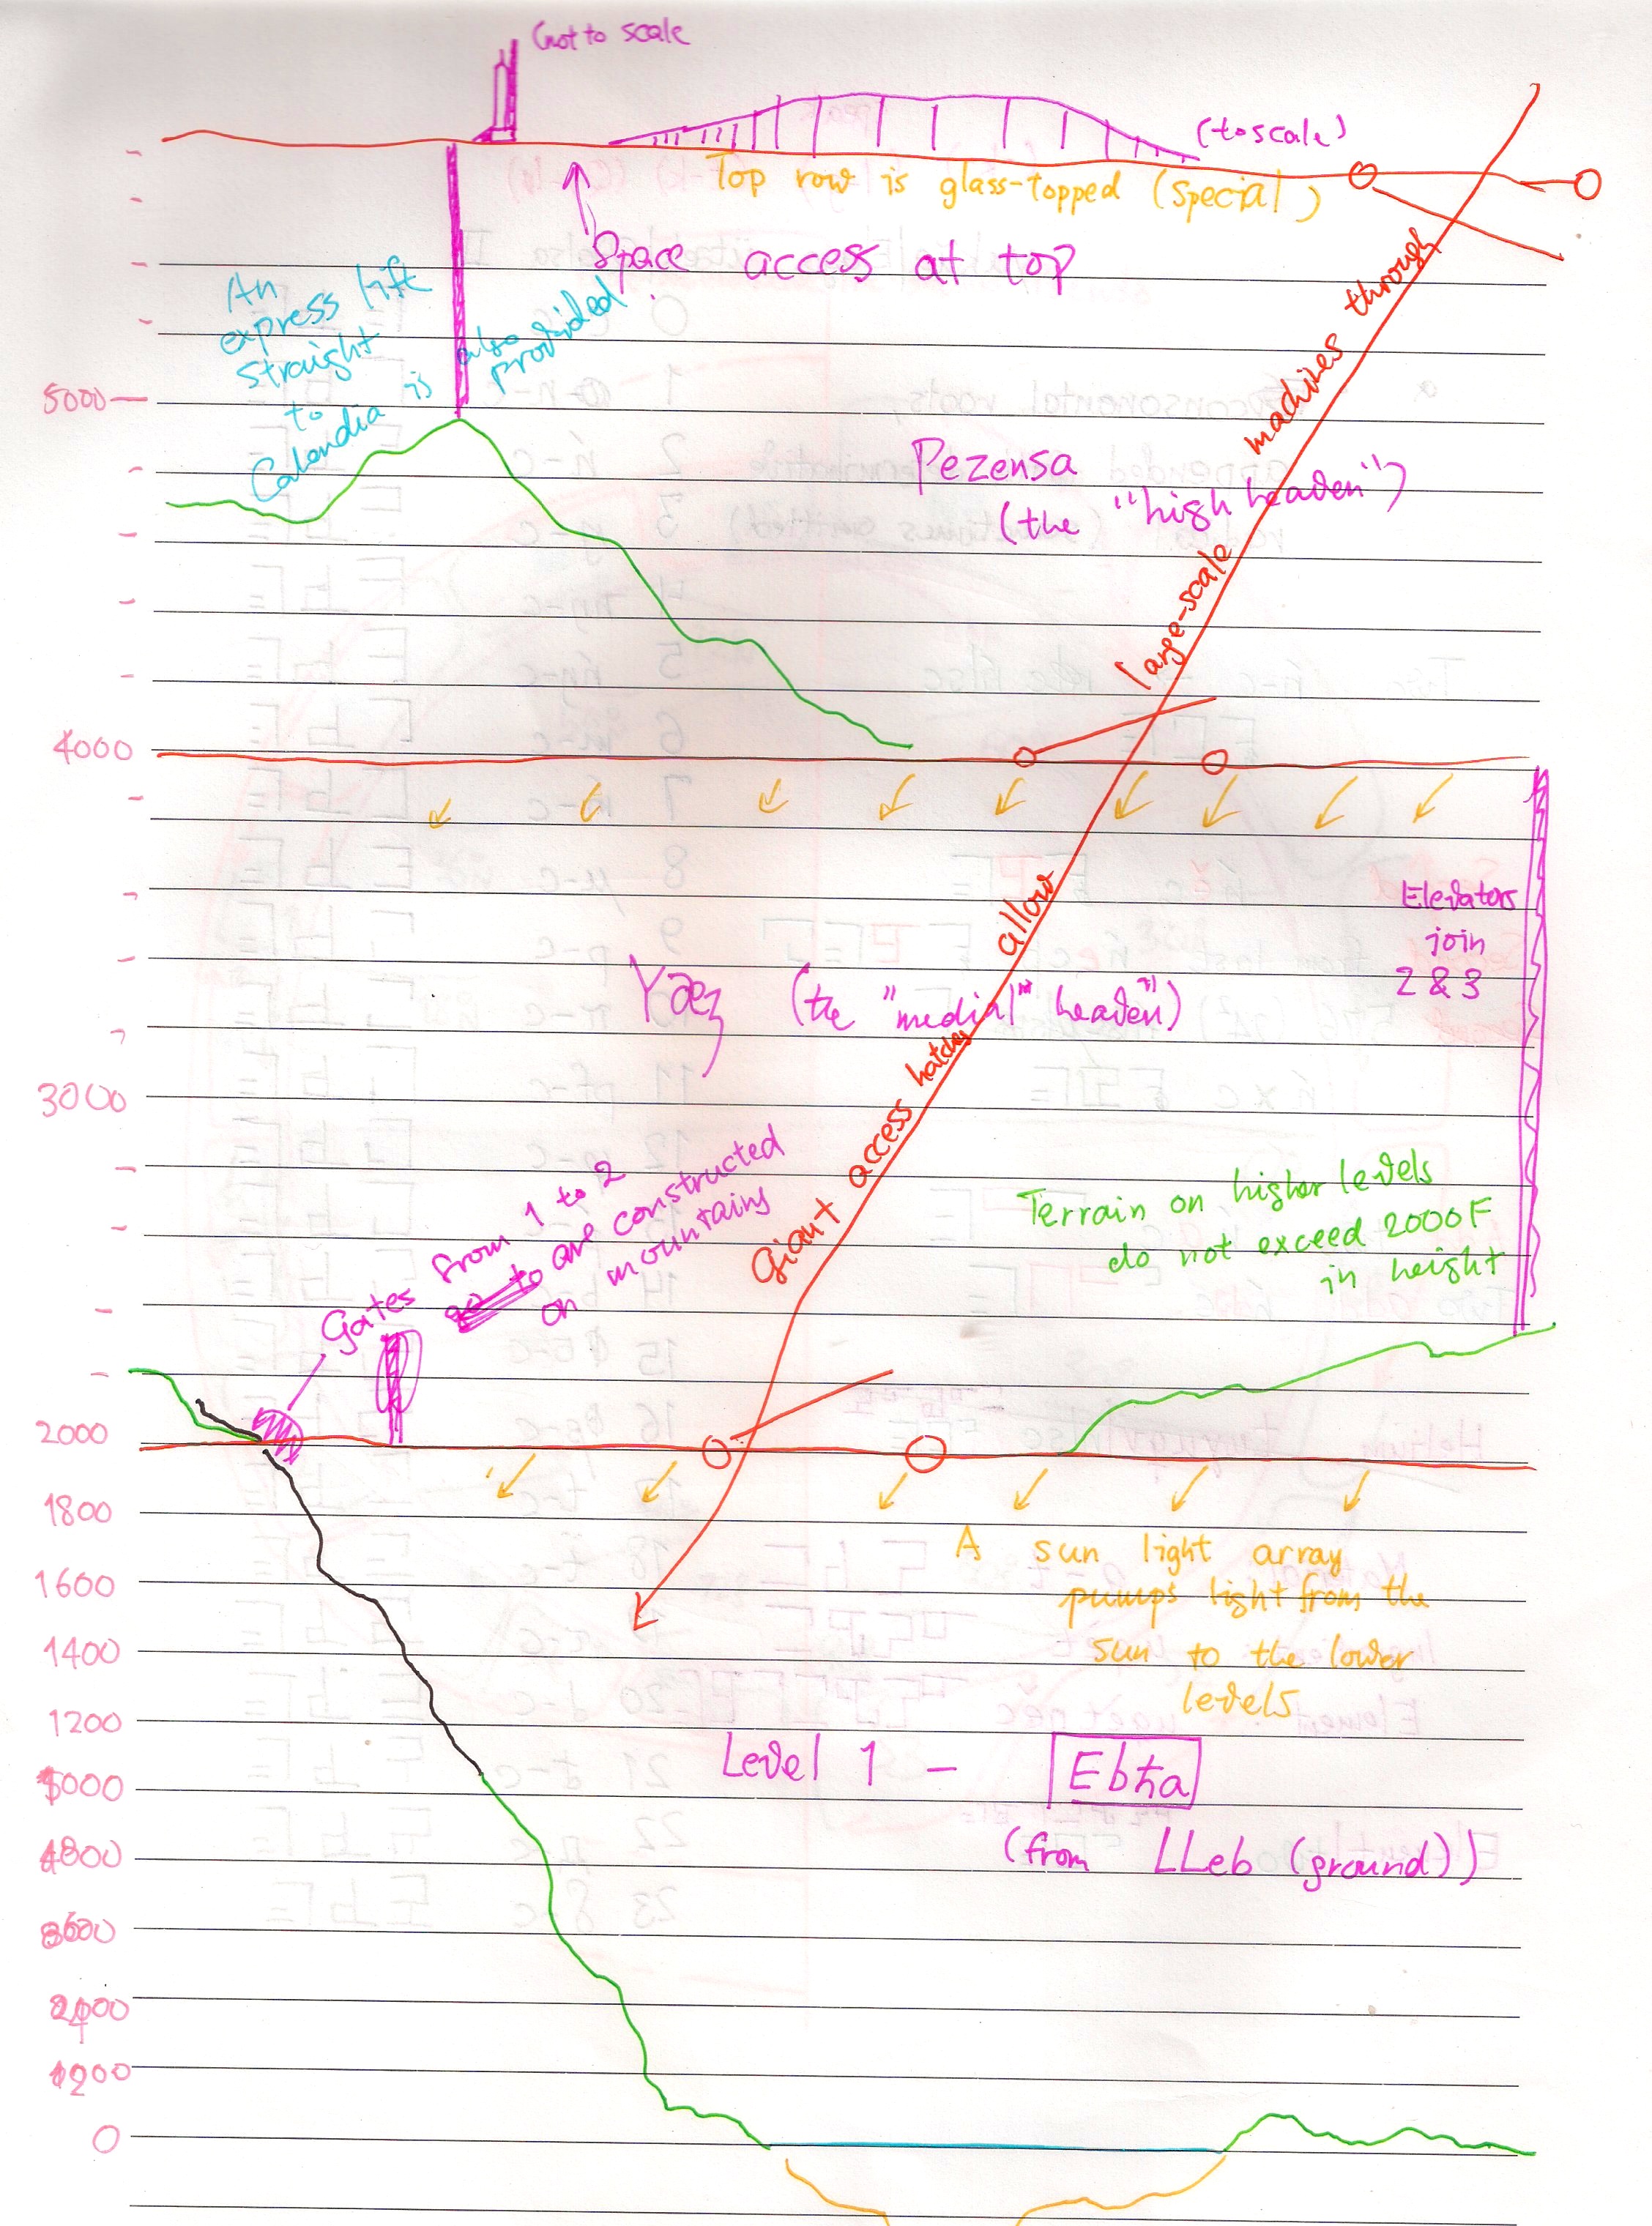 (not to scale
(to scale)
Top row is glass-topped (special)
Space access at top
An
express lift
straight
to
Calendia is also
provided
5000
Pezensa
(the "high heaven")
4000
Elevators
join
2 & 3
(the "medial" heaven)
3000
Giant access hatches allow large-scale machines through
Gates from 1 to 2
are constructed
on mountains
Terrain on higher levels
do not exceed 2000F
in height
2000
1800
A sun light array
pumps light from the
sun to the lower
levels
1600
1400
1200
Level 1 - Ebħa
(from LLeb (ground))
1000
0